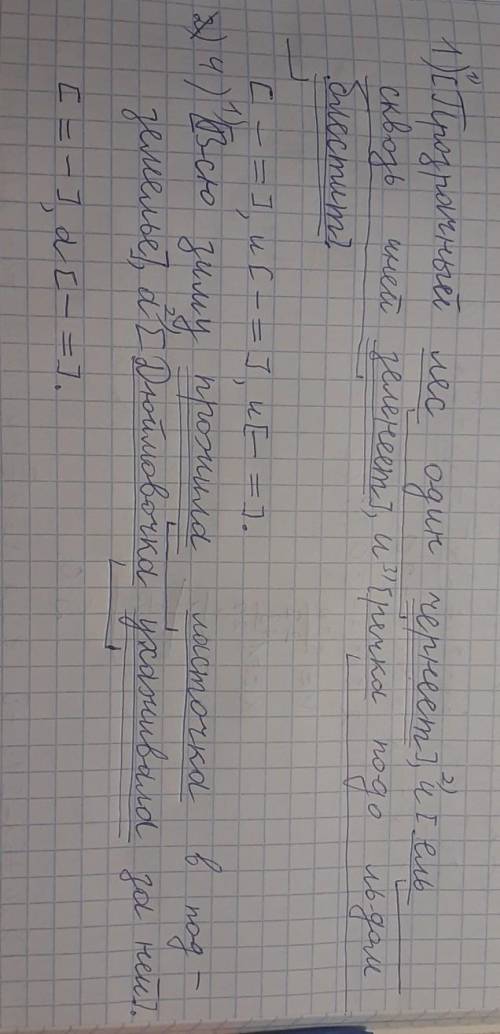 1) 1)[Прозрачный лес один чернеет], и 2)[ель
сквозь иней зеленеет], и 3)[речка подо льдом
блестит].
[ – = ], и [ – = ], и [ – = ].
4) 1)[Всю зиму прожила ласточка в под-
земелье], а 2)[Дюймовочка ухаживала за ней].
[ = – ], а [ – = ].